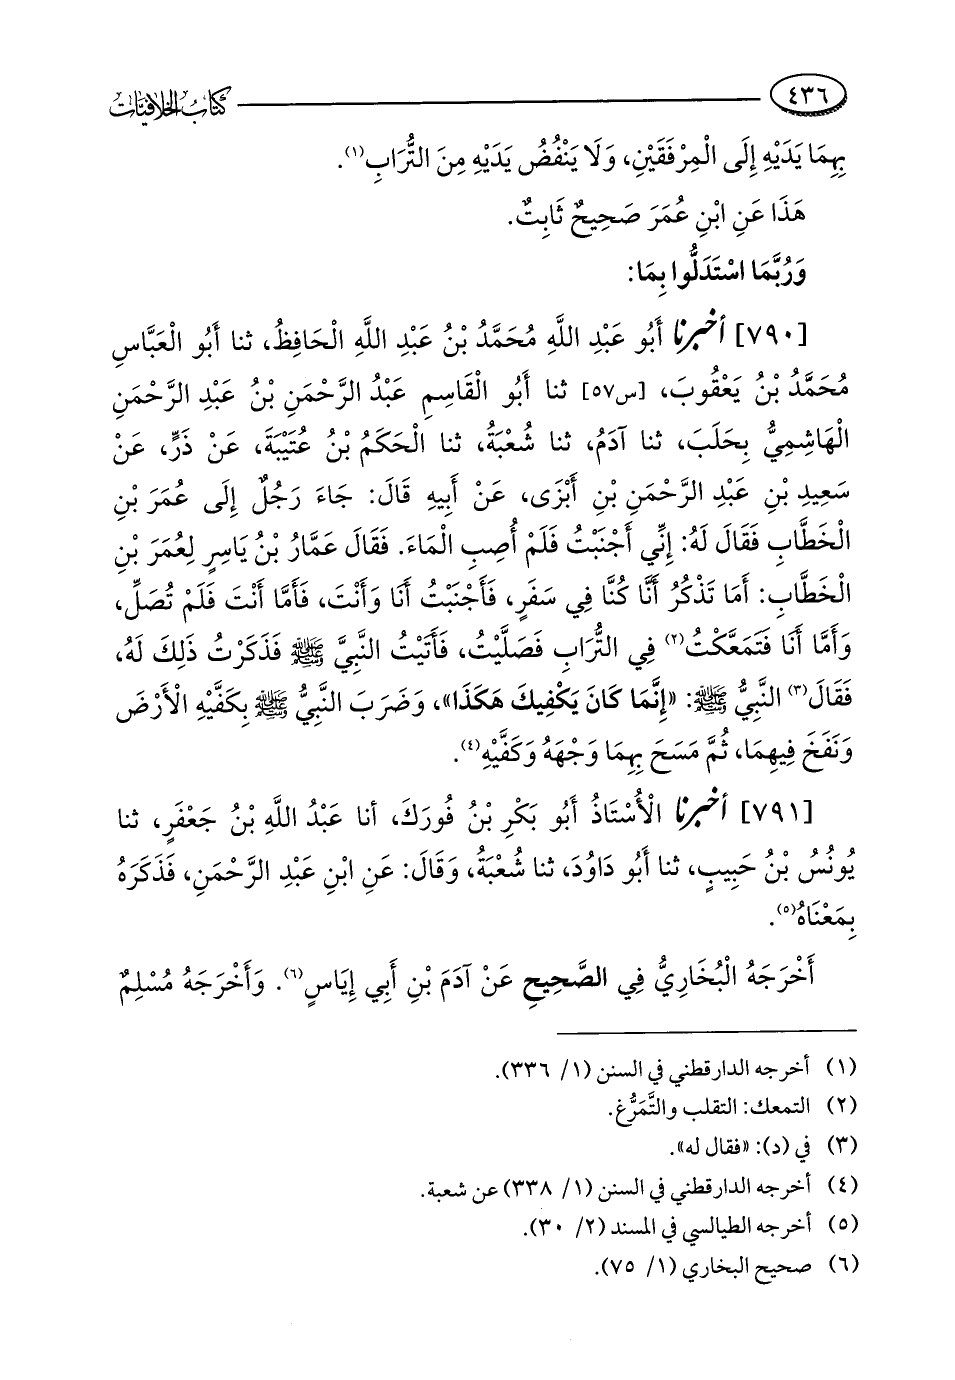 ٤٣٦
كتاب الخلافيات
بِهِمَا يَدَيْهِ إِلَى الْمِرْفَقَيْنِ، وَلَا يَنْفُضُ يَدَيْهِ مِنَ التُّرَابِ(١).
هَذَا عَنِ ابْنِ عُمَرَ صَحِيحٌ ثَابِتٌ.
وَرُبَّمَا اسْتَدَلُّوا بِمَا:
[٧٩٠] أخبرنا أَبُو عَبْدِ اللَّهِ مُحَمَّدُ بْنُ عَبْدِ اللَّهِ الْحَافِظُ، ثنا أَبُو الْعَبَّاسِ
مُحَمَّدُ بْنُ يَعْقُوبَ، [س٥٧] ثنا أَبُو الْقَاسِمِ عَبْدُ الرَّحْمَنِ بْنُ عَبْدِ الرَّحْمَنِ
الْهَاشِمِيُّ بِحَلَبَ، ثنا آدَمُ، ثنا شُعْبَةُ، ثنا الْحَكَمُ بْنُ عُتَيْبَةَ، عَنْ ذَرٍّ، عَنْ
سَعِيدِ بْنِ عَبْدِ الرَّحْمَنِ بْنِ أَبْزَى، عَنْ أَبِيهِ قَالَ: جَاءَ رَجُلٌ إِلَى عُمَرَ بْنِ
الْخَطَّابِ فَقَالَ لَهُ: إِنِّي أَجْنَبْتُ فَلَمْ أُصِبِ الْمَاءَ. فَقَالَ عَمَّارُ بْنُ يَاسِرٍ لِعُمَرَ بْنِ
الْخَطَّابِ: أَمَا تَذْكُرُ أَنَّا كُنَّا فِي سَفَرٍ، فَأَجْنَبْتُ أَنَا وَأَنْتَ، فَأَمَّا أَنْتَ فَلَمْ تُصَلِّ،
وَأَمَّا أَنَا فَتَمَعَّكْتُ(٢) فِي التُّرَابِ فَصَلَّيْتُ، فَأَتَيْتُ النَّبِيَّ ﷺ فَذَكَرْتُ ذَلِكَ لَهُ،
فَقَالَ(٣) النَّبِيُّ ﷺ: «إِنَّمَا كَانَ يَكْفِيكَ هَكَذَا»، وَضَرَبَ النَّبِيُّ ﷺ بِكَفَّيْهِ الْأَرْضَ
وَنَفَخَ فِيهِمَا، ثُمَّ مَسَحَ بِهِمَا وَجْهَهُ وَكَفَّيْهِ(٤).
[٧٩١] أخبرنا الْأُسْتَاذُ أَبُو بَكْرِ بْنُ فُورَكَ، أنا عَبْدُ اللَّهِ بْنُ جَعْفَرٍ، ثنا
يُونُسُ بْنُ حَبِيبٍ، ثنا أَبُو دَاوُدَ، ثنا شُعْبَةُ، وَقَالَ: عَنِ ابْنِ عَبْدِ الرَّحْمَنِ، فَذَكَرَهُ
بِمَعْنَاهُ(٥).
أَخْرَجَهُ الْبُخَارِيُّ فِي الصَّحِيحِ عَنْ آدَمَ بْنِ أَبِي إِيَاسٍ(٦). وَأَخْرَجَهُ مُسْلِمٌ
(١) أخرجه الدارقطني في السنن (١/ ٣٣٦).
(٢) التمعك: التقلب والتَّمَرُّغ.
(٣) في (د): «فقال له».
(٤) أخرجه الدارقطني في السنن (١/ ٣٣٨) عن شعبة.
(٥) أخرجه الطيالسي في المسند (٢/ ٣٠).
(٦) صحيح البخاري (١/ ٧٥).